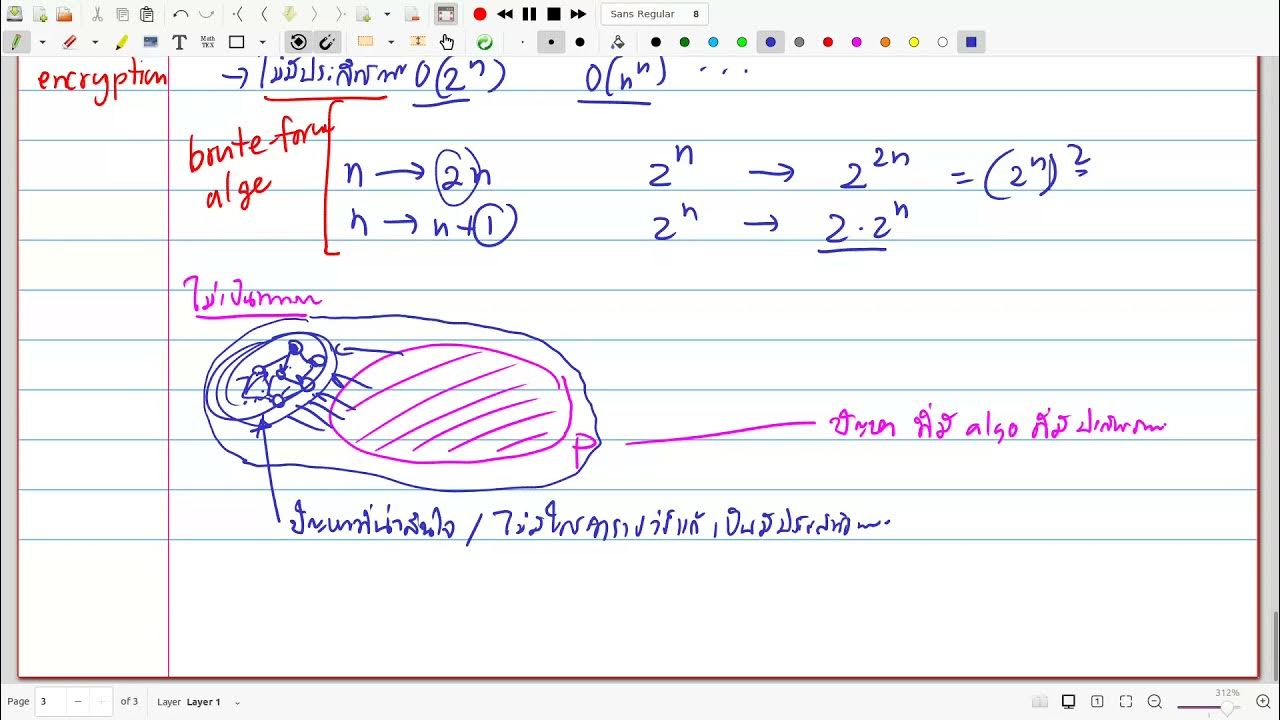 Sans Regular 8
encryption → ไม่มีประสิทธิภาพ O(2ⁿ) O(nⁿ) ...
broute-force
algo
n → 2n 2ⁿ → 2²ⁿ = (2ⁿ)²
n → n+1 2ⁿ → 2·2ⁿ
ไม่เป็นทางการ
P
ปัญหา ที่มี algo ที่มีประสิทธิภาพ
ปัญหาที่น่าสนใจ / ไม่มีใครทราบว่า
Page 3 of 3 Layer Layer 1 312%